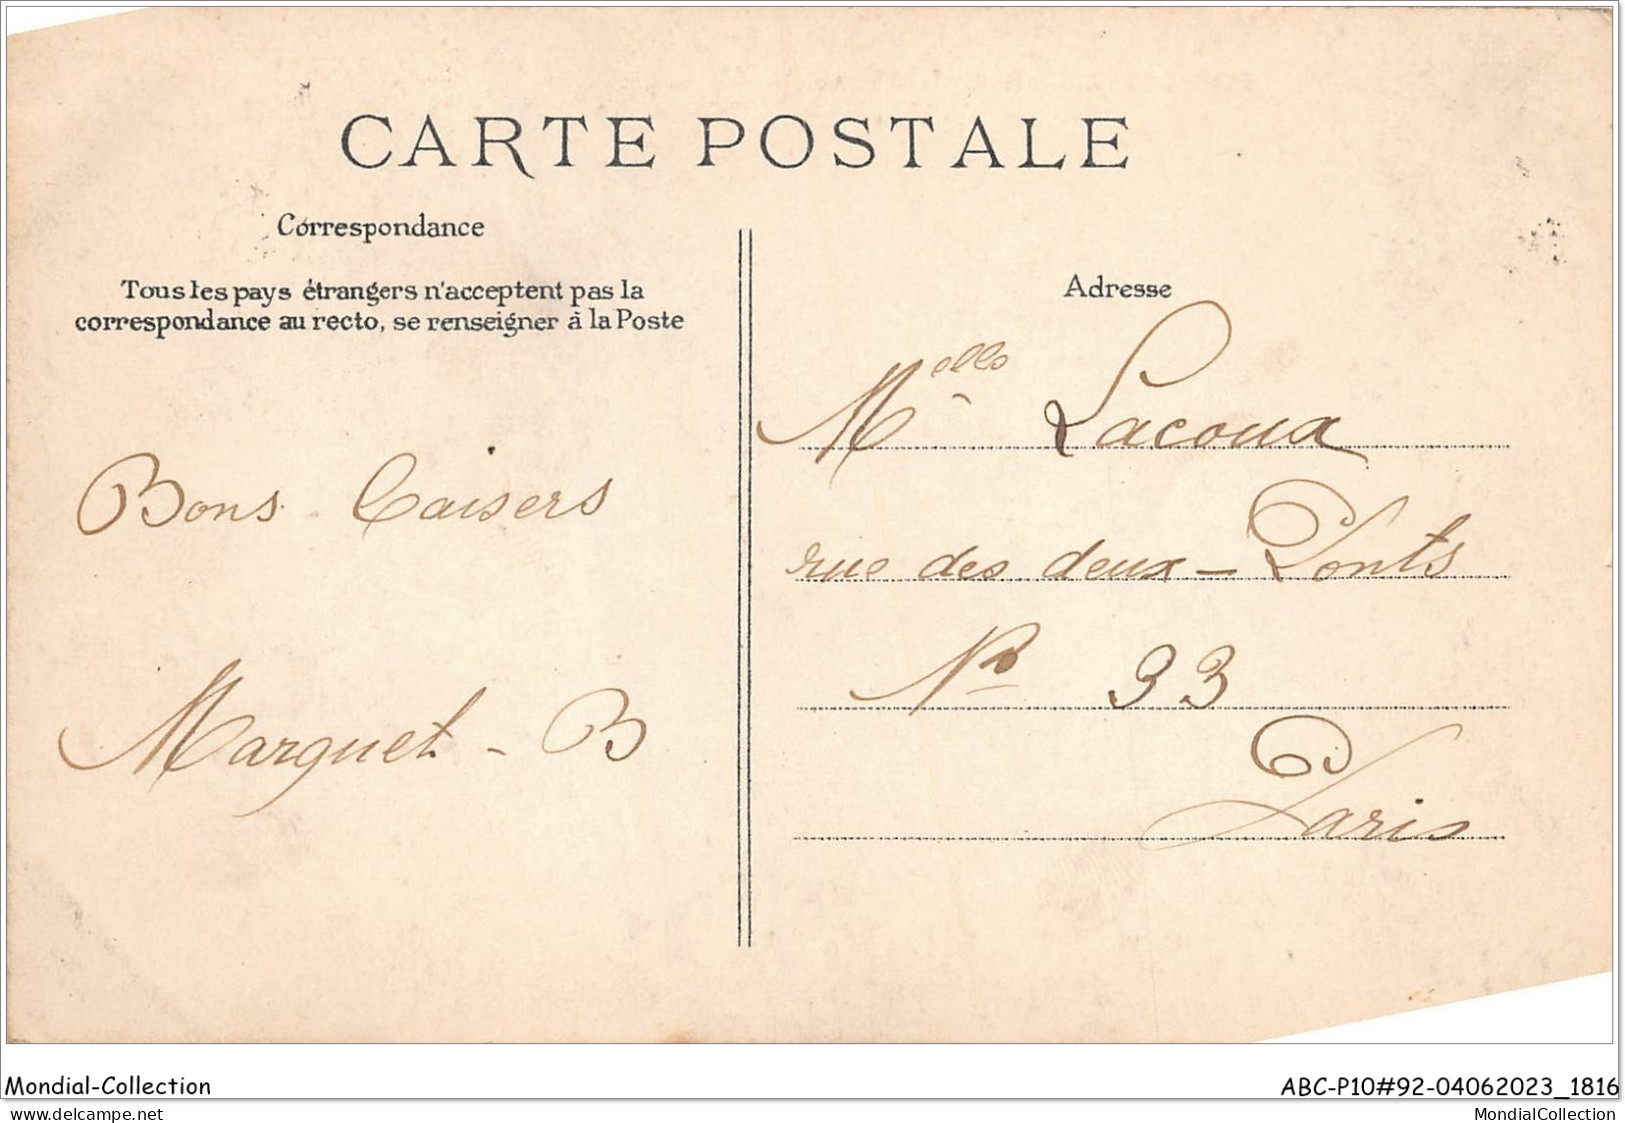 CARTE POSTALE
Correspondance
Tous les pays étrangers n'acceptent pas la
correspondance au recto, se renseigner à la Poste
Bons baisers
Marguet - B
Adresse
Melle Lacoua
rue des deux - Ponts
No 33
Paris
Mondial-Collection
ABC-P10#92-04062023_1816
www.delcampe.net
MondialCollection